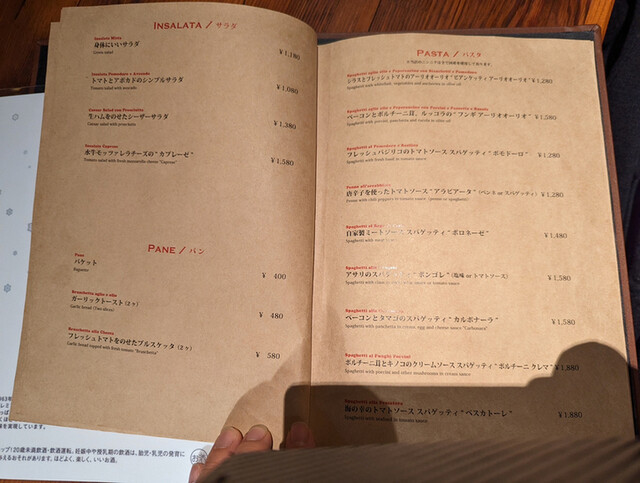 INSALATA / サラダ
Insalata Mista
身体にいいサラダ
¥1,180
Green salad
Insalata Pomodoro e Avocado
トマトとアボカドのシンプルサラダ
¥1,080
Tomato salad with avocado
Caesar Salad con Prosciutto
生ハムをのせたシーザーサラダ
¥1,380
Caesar salad with prosciutto
Insalata Caprese
水牛モッツァレラチーズの"カプレーゼ"
¥1,580
Tomato salad with fresh mozzarella cheese "Caprese"
PANE / パン
Pane
バケット
¥ 400
Baguette
Bruschetta aglio e olio
ガーリックトースト(2ヶ)
¥ 480
Garlic bread (Two slices)
Bruschetta alla Checca
フレッシュトマトをのせたブルスケッタ(2ヶ)
¥ 580
Garlic bread topped with fresh tomato "Bruschetta"
PASTA / パスタ
シラスとフレッシュトマトのアーリオオーリオ"ビアンケッティ アーリオオーリオ" ¥1,280
ベーコンとポルチーニ茸、ルッコラの"フンギ アーリオオーリオ" ¥1,580
Spaghetti al Pomodoro e Basilico
フレッシュバジリコのトマトソース スパゲッティ"ポモドーロ" ¥1,280
Spaghetti with fresh basil in tomato sauce
Penne all'arrabbiata
唐辛子を使ったトマトソース"アラビアータ"(ペンネ or スパゲッティ) ¥1,280
Penne with chili peppers in tomato sauce (penne or spaghetti)
自家製ミートソース スパゲッティ"ボロネーゼ" ¥1,480
アサリのスパゲッティ"ボンゴレ"(塩味 or トマトソース) ¥1,580
ベーコンとタマゴのスパゲッティ"カルボナーラ" ¥1,580
Spaghetti with pancetta in cream, egg and cheese sauce "Carbonara"
Spaghetti ai Funghi Porcini
ポルチーニ茸とキノコのクリームソース スパゲッティ"ポルチーニ クレマ" ¥1,880
Spaghetti with porcini and other mushrooms in cream sauce
Spaghetti alla Pescatora
海の幸のトマトソース スパゲッティ"ペスカトーレ" ¥1,880
Spaghetti with seafood in tomato sauce
を実現しています。
ップ!20歳未満飲酒・飲酒運転。妊娠中や授乳期の飲酒は、胎児・乳児の発育に
与えるおそれがあります。ほどよく、楽しく、いいお酒。